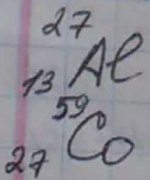 27
13 Al
59
27 Co